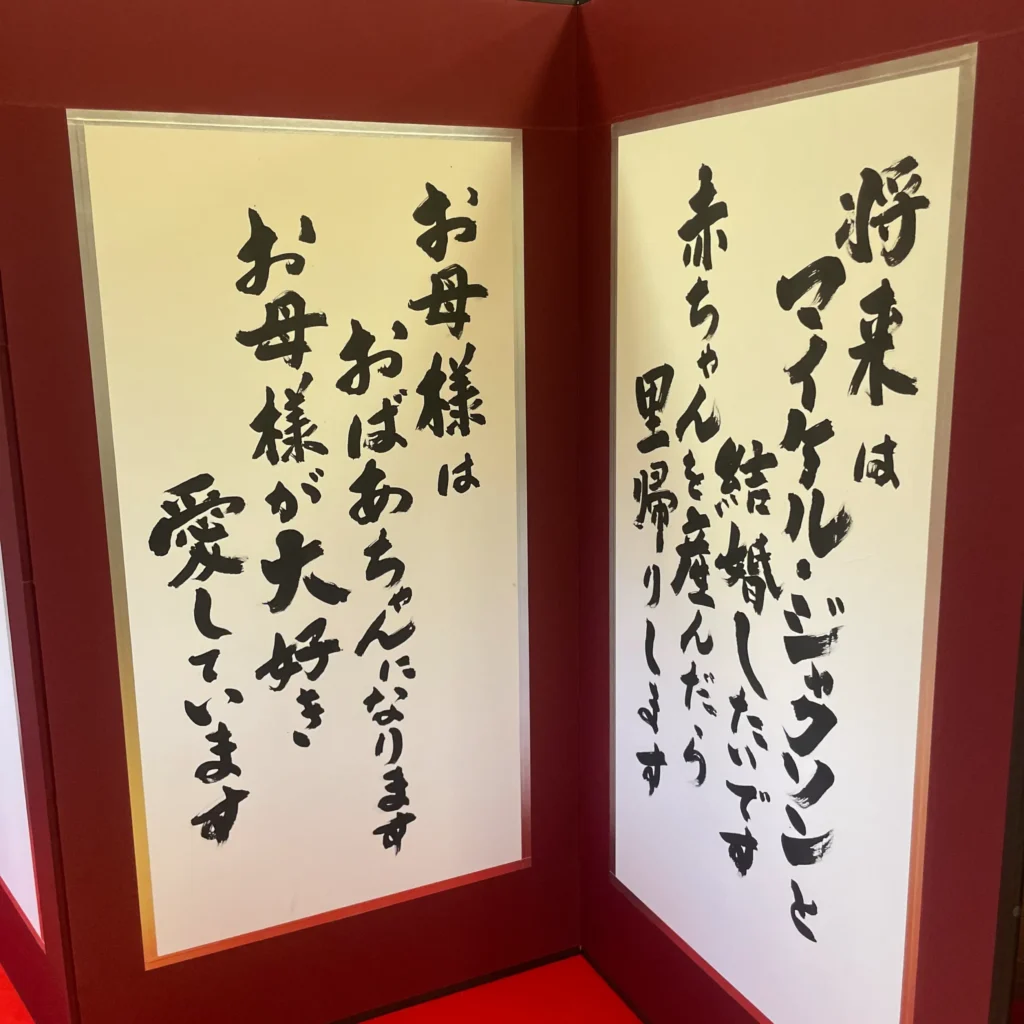 将来は
マイケル・ジャクソンと
結婚したいです
赤ちゃんを産んだら
里帰りします
お母様は
おばあちゃんになります
お母様が大好き
愛しています